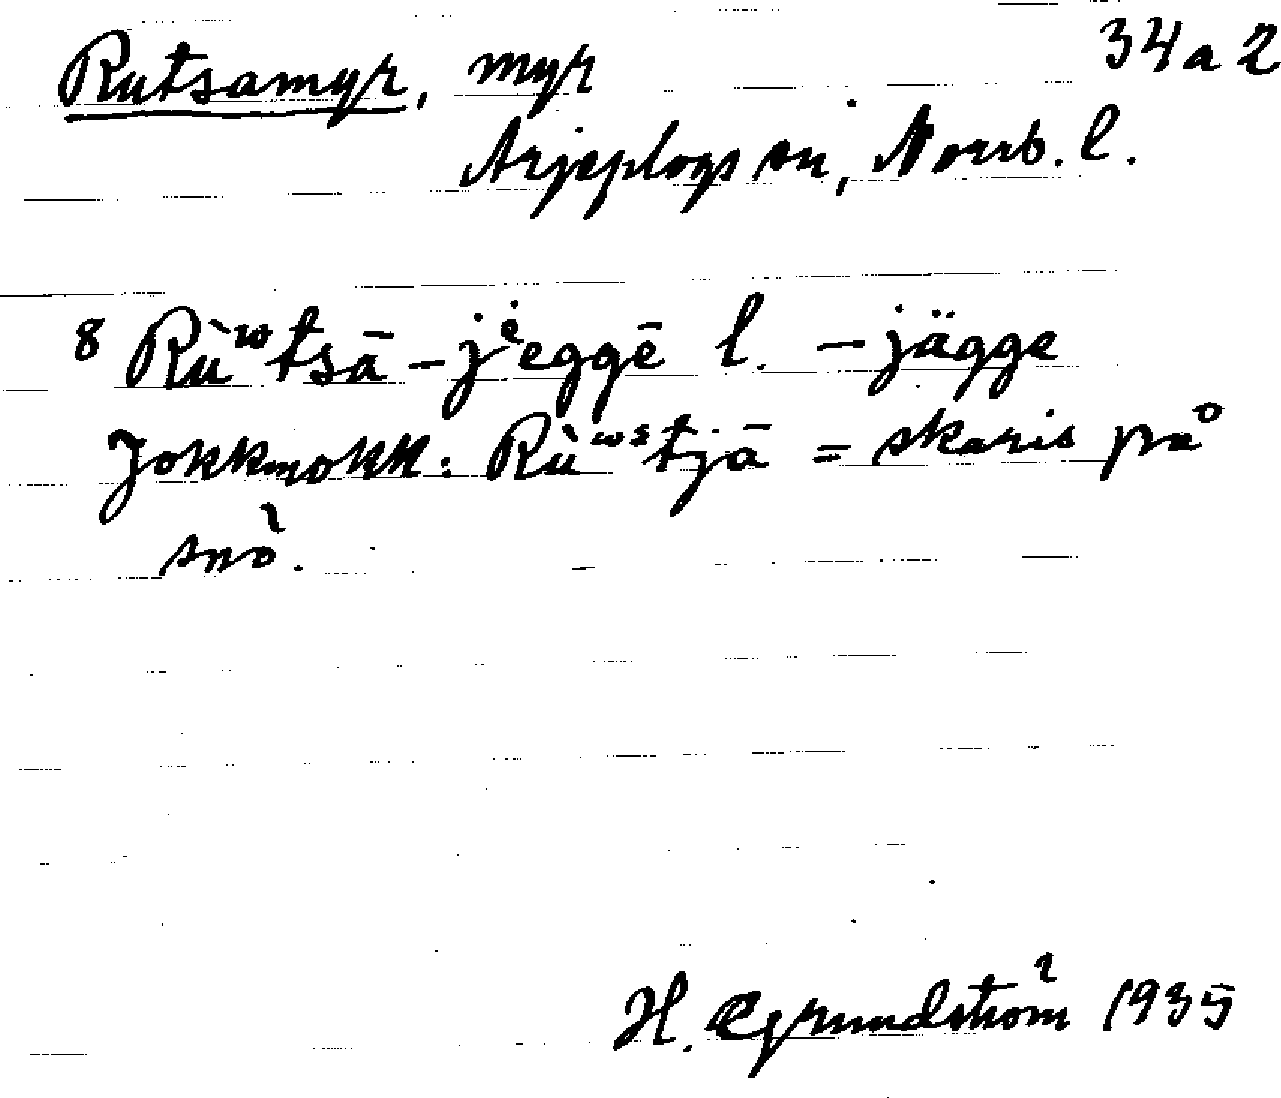 Rutsamyr, myr 34a2
Arjeplogs sn, Norrb. l.
8 Rùʷtsā-jᵉ̇eggē l. -jägge
Jokkmokk: Rùʷˢtjā = skaris på
snö.
H. Grundström 1935